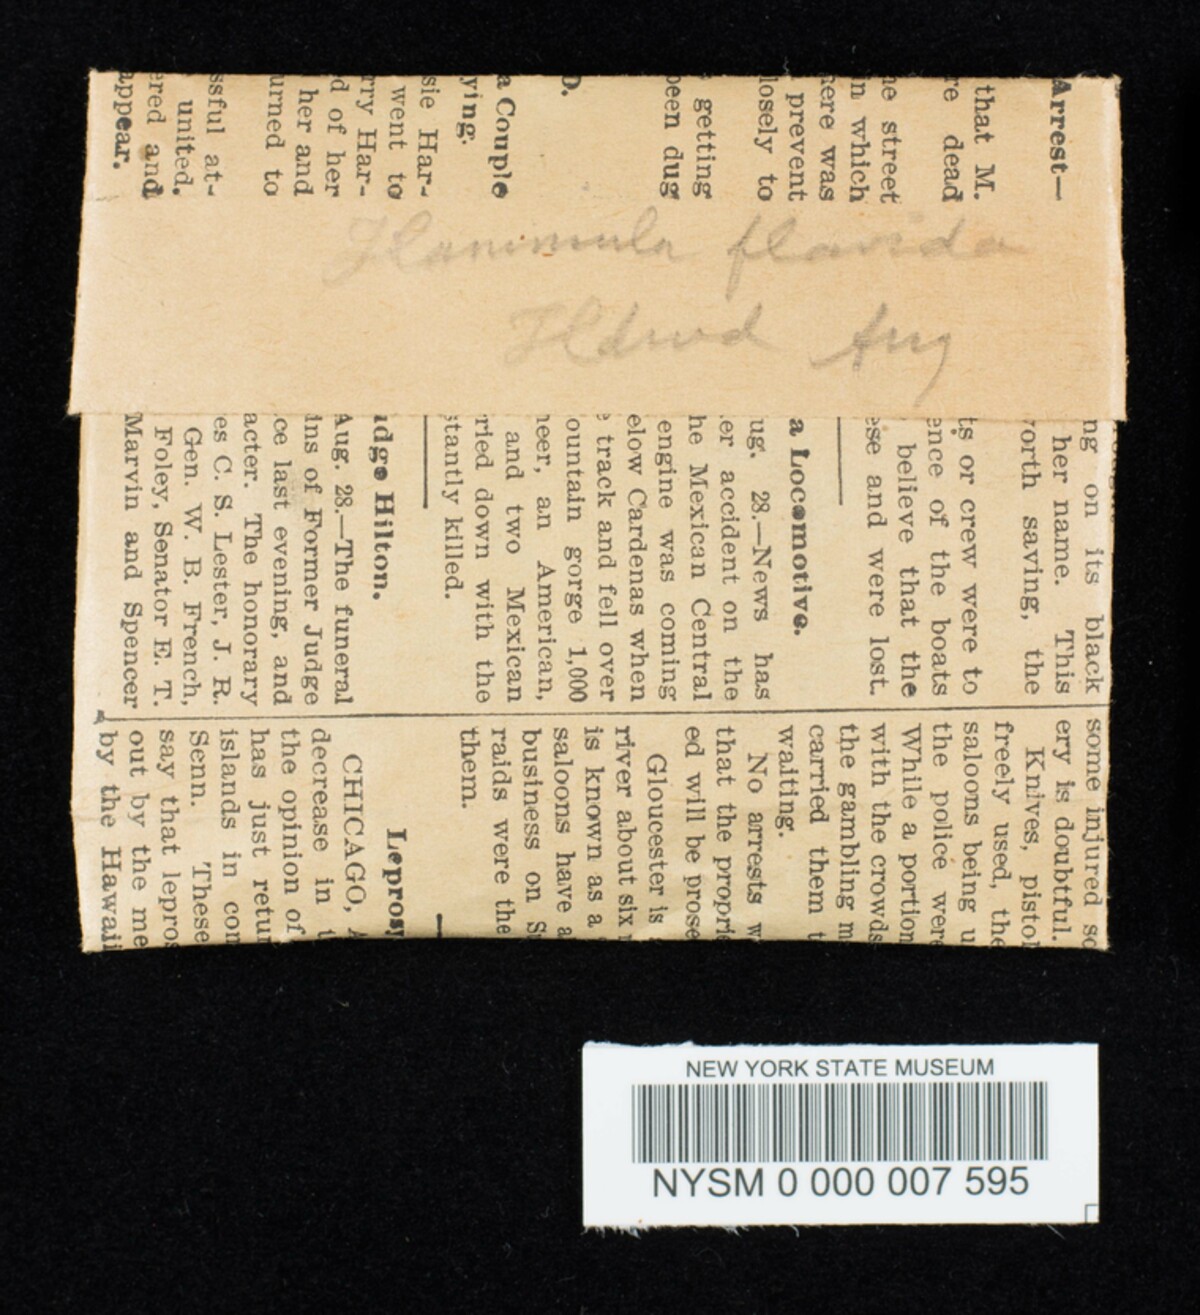 Arrest—
that M.
re dead
ne street
in which
here was
prevent
losely to
getting
been dug
D.
a Couple
ying.
sie Har-
went to
rry Har-
d of her
her and
urned to
ssful at-
united.
ered and
appear.
Flammula flavida
Hdwd Aug
ng on its black
her name. This
orth saving, the
ts or crew were to
ence of the boats
believe that the
ese and were lost.
a Locomotive.
ug. 28.—News has
er accident on the
he Mexican Central
engine was coming
elow Cardenas when
e track and fell over
ountain gorge 1,000
neer, an American,
and two Mexican
ried down with the
stantly killed.
idge Hilton.
Aug. 28.—The funeral
ins of Former Judge
ce last evening, and
acter. The honorary
es C. S. Lester, J. R.
Gen. W. B. French,
Foley, Senator E. T.
Marvin and Spencer
some injured so
ery is doubtful.
Knives, pistol
freely used, the
saloons being u
the police were
While a portion
with the crowds
the gambling m
carried them t
waiting.
No arrests w
that the proprie
ed will be prose
Gloucester is
river about six
is known as a
saloons have a
business on S
raids were the
them.
Leprosy
CHICAGO, A
decrease in t
the opinion of
has just retur
islands in con
Senn. These
say that lepros
out by the me
by the Hawaii
NEW YORK STATE MUSEUM
NYSM 0 000 007 595